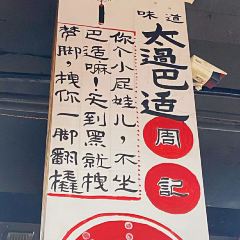 味道
太過巴适
周記
你个小屁娃儿，不坐
巴适嘛！天到黑就拽
梦脚，拽你一脚翻撬